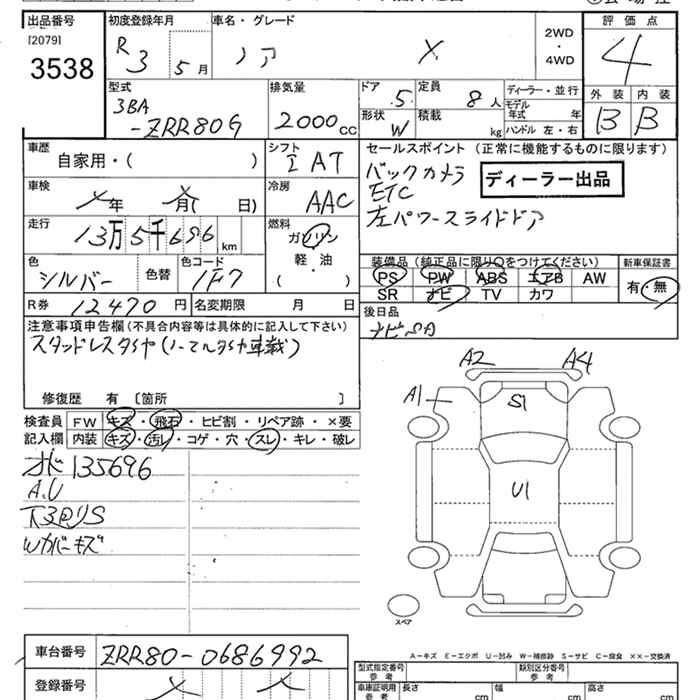 出品番号 初度登録年月 車名・グレード 評価点
[2079] R 3 5月 ノア X 2WD・4WD 4
3538
外装 内装
B B
型式 排気量 ドア 5 定員 8人 ディーラー・並行
3BA 形状 W 積載 kg モデル年式 年
-ZRR80G 2000cc ハンドル 左・右
車歴 自家用・( ) シフト I AT セールスポイント (正常に機能するものに限ります)
バックカメラ ディーラー出品
ETC
左パワースライドドア
車検 年 月( 日) 冷房 AAC
走行 13万5千696km 燃料 ガソリン
軽・油
( ・ )
色 シルバー 色替 色コード 1F7
装備品 (純正品に限り○をつけてください) 新車保証書
PS PW ABS エアB AW 有・無
SR ナビ TV カワ
R券 12470円 名変期限 月 日
後日品
ナビSD
注意事項申告欄(不具合内容等は具体的に記入して下さい)
スタッドレスタイヤ(ノーマルタイヤ車載)
修復歴 有 〔箇所 〕
検査員 FW キズ・飛石・ヒビ割・リペア跡・×要
記入欄 内装 キズ・汚レ・コゲ・穴・スレ・キレ・破レ
オド 135696
A.U
下回りS
Wカバーキズ
A2 A4
A1 S1
U1
スペア
A－キズ E－エクボ U－凹み W－補修跡 S－サビ C－腐食 ××－交換済
車台番号 ZRR80-0686992
登録番号
型式指定番号 参考 類別区分番号 参考
車庫証明用 参考 長さ cm 幅 cm 高さ cm